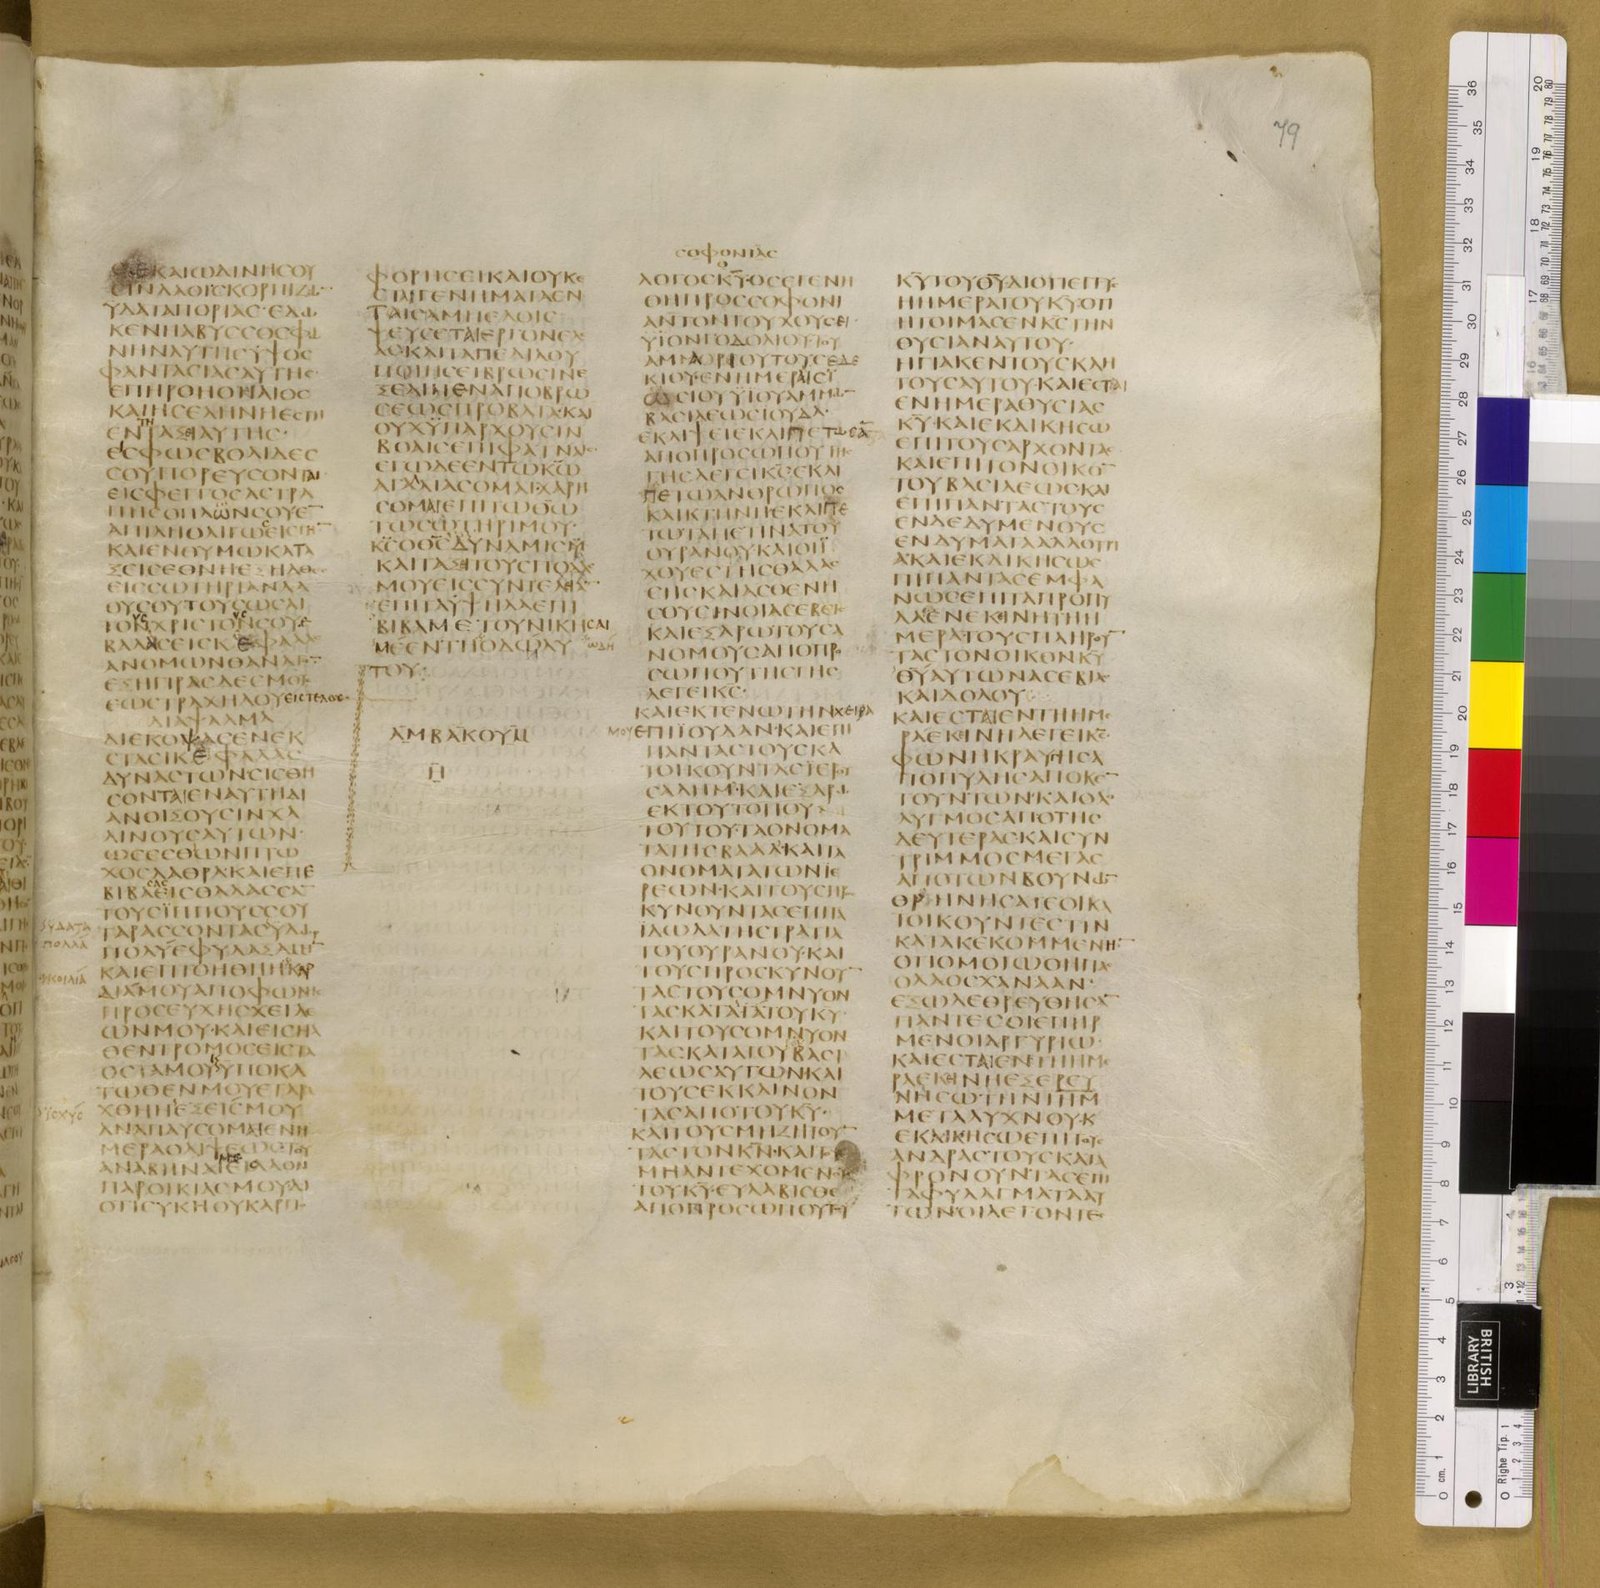 ϹΕΚΑΙΩΔΙΝΗϹΟΥ
ϹΙΝΛΑΟΙϹΚΟΡΠΙΖΩ¯
ΥΔΑΤΑΠΟΡΙΑϹ·ΕΔΩ
ΚΕΝΗΑΒΥϹϹΟϹΦΩ
ΝΗΝΑΥΤΗϹΥΨΟϹ
ΦΑΝΤΑϹΙΑϹΑΥΤΗϹ·
ΕΠΗΡΘΗΟΗΛΙΟϹ
ΚΑΙΗϹΕΛΗΝΗΕϹΤΗ
ΕΝΤΗΤΑΞΙΑΥΤΗϹ·
ΕΙϹΦΩϹΒΟΛΙΔΕϹ
ϹΟΥΠΟΡΕΥϹΟΝΤΑΙ
ΕΙϹΦΕΓΓΟϹΑϹΤΡΑ
ΠΗϹΟΠΛΩΝϹΟΥΕ¯
ΑΠΙΛΗΟΛΙΓΩϹΕΙϹΓΗ¯
ΚΑΙΕΝΘΥΜΩΚΑΤΑ
ΞΕΙϹΕΘΝΗΕΞΗΛΘΕϹ
ΕΙϹϹΩΤΗΡΙΑΝΛΑ
ΟΥϹΟΥΤΟΥϹΩϹΑΙ
ΤΟΥϹΧΡΙϹΤΟΥϹϹΟΥΕ
ΒΑΛΕϹΕΙϹΚΕΦΑΛΑϹ
ΑΝΟΜΩΝΘΑΝΑΤΟ¯
ΕΞΗΓΙΡΑϹΔΕϹΜΟΥϹ
ΕΩϹΤΡΑΧΗΛΟΥΕΙϹΤΕΛΟϹ
ΔΙΑΨΑΛΜΑ
ΔΙΕΚΟΨΑϹΕΝΕΚ
ϹΤΑϹΙΚΕΦΑΛΑϹ
ΔΥΝΑϹΤΩΝϹΙϹΘΗ
ϹΟΝΤΑΙΕΝΑΥΤΗΔΙ
ΑΝΟΙΞΟΥϹΙΝΧΑ
ΛΙΝΟΥϹΑΥΤΩΝ·
ΩϹΕϹΘΩΝΠΤΩ
ΧΟϹΛΑΘΡΑΚΑΙΕΠΕ
ΒΙΒΑϹΑϹΕΙϹΘΑΛΑϹϹΑ¯
ΤΟΥϹΪΠΠΟΥϹϹΟΥ
ΤΑΡΑϹϹΟΝΤΑϹΥΔΩΡ
ΠΟΛΥΕΦΥΛΑΞΑΜΗ¯
ΚΑΙΕΠΤΟΗΘΗΗΚΑΡ
ΔΙΑΜΟΥΑΠΟΦΩΝΗϹ
ΠΡΟϹΕΥΧΗϹΧΕΙΛΕ
ΩΝΜΟΥ·ΚΑΙΕΙϹΗΛ
ΘΕΝΤΡΟΜΟϹΕΙϹΤΑ
ΟϹΤΑΜΟΥΥΠΟΚΑ
ΤΩΘΕΝΜΟΥΕΤΑΡΑ
ΧΘΗΗΕΞΕΙϹΜΟΥ
ΑΝΑΠΑΥϹΟΜΑΙΕΝΗ
ΜΕΡΑΘΛΙΨΕΩϹΤΟΥ
ΑΝΑΒΗΝΑΙΕΙϹΛΑΟΝ
ΠΑΡΟΙΚΙΑϹΜΟΥΔΙ
ΟΤΙϹΥΚΗΟΥΚΑΡΠΟ
ΥΔΑΤΑ
ΠΟΛΛΑ
ΗΚΟΙΛΙΑ
ΙϹΧΥϹ
ΦΟΡΗϹΕΙΚΑΙΟΥΚΕ
ϹΤΑΙΓΕΝΗΜΑΤΑΕΝ
ΤΑΙϹΑΜΠΕΛΟΙϹ
ΨΕΥϹΕΤΑΙΕΡΓΟΝΕΛΑΙ
ΑϹΚΑΙΤΑΠΕΔΙΑΟΥ
ΠΟΙΗϹΕΙΒΡΩϹΙΝΕ
ΞΕΛΙΠΕΝΑΠΟΒΡΩ
ϹΕΩϹΠΡΟΒΑΤΑ·ΚΑΙ
ΟΥΧΫΠΑΡΧΟΥϹΙΝ
ΒΟΑΙϹΕΠΙΦΑΤΝΑΙϹ
ΕΓΩΔΕΕΝΤΩΚΩ
ΑΓΑΛΛΙΑϹΟΜΑΙ·ΧΑΡΗ
ϹΟΜΑΙΕΠΙΤΩΘΩ
ΤΩϹΩΤΗΡΙΜΟΥ·
ΚϹΟΘϹΔΥΝΑΜΙϹΜΟΥ
ΚΑΙΤΑΞΙΤΟΥϹΠΟΔΑϹ
ΜΟΥΕΙϹϹΥΝΤΕΛΕΙΑ¯
ΕΠΙΤΑΥΨΗΛΑΕΠΙ
ΒΙΒΑΜΕΤΟΥΝΙΚΗϹΑΙ
ΜΕΕΝΤΗΩΔΗΑΥ
ΤΟΥ:
ΑΜΒΑΚΟΥΜ
Η
ϹΟΦΟΝΙΑϹ
ΛΟΓΟϹΚΥ·ΟϹΕΓΕΝΗ
ΘΗΠΡΟϹϹΟΦΟΝΙ
ΑΝΤΟΝΤΟΥΧΟΥϹΕΙ·
ΥΪΟΝΓΟΔΟΛΙΟΥ·ΤΟΥ
ΑΜΑΡΙΟΥΤΟΥϹΕΔΕ
ΚΙΟΥ·ΕΝΗΜΕΡΑΙϹΪ
ΩϹΙΟΥΥΪΟΥΑΜΜΩ¯
ΒΑϹΙΛΕΩϹΙΟΥΔΑ·
ΕΚΛΙΨΕΙΕΚΛΙΠΕΤΩϹΑ¯
ΑΠΟΠΡΟϹΩΠΟΥΤΗϹ
ΓΗϹΛΕΓΕΙΚϹΕΚΛΙ
ΠΕΤΩΑΝΘΡΩΠΟϹ
ΚΑΙΚΤΗΝΗΕΚΛΙΠΕ
ΤΩΤΑΠΕΤΙΝΑΤΟΥ
ΟΥΡΑΝΟΥΚΑΙΟΙΪ
ΧΘΥΕϹΤΗϹΘΑΛΑϹ
ϹΗϹΚΑΙΑϹΘΕΝΗ
ϹΟΥϹΙΝΟΙΑϹΕΒΕΙϹ
ΚΑΙΕΞΑΡΩΤΟΥϹΑ
ΝΟΜΟΥϹΑΠΟΠΡΟ
ϹΩΠΟΥΤΗϹΓΗϹ
ΛΕΓΕΙΚϹ·
ΚΑΙΕΚΤΕΝΩΤΗΝΧΕΙΡΑ
ΜΟΥΕΠΙΪΟΥΔΑΝ·ΚΑΙΕΠΙ
ΠΑΝΤΑϹΤΟΥϹΚΑ
ΤΟΙΚΟΥΝΤΑϹΪΕΡΟΥ
ϹΑΛΗΜ·ΚΑΙΕΞΑΡΩ
ΕΚΤΟΥΤΟΠΟΥ
ΤΟΥΤΟΥ·ΤΑΟΝΟΜΑ
ΤΑΤΗϹΒΑΑΛ·ΚΑΙΤΑ
ΟΝΟΜΑΤΑΤΩΝΙΕ
ΡΕΩΝ·ΚΑΙΤΟΥϹΠΡΟϹ
ΚΥΝΟΥΝΤΑϹΕΠΙΤΑ
ΔΩΜΑΤΑΤΗϹΤΡΑΤΙΑ
ΤΟΥΟΥΡΑΝΟΥ·ΚΑΙ
ΤΟΥϹΠΡΟϹΚΥΝΟΥ¯
ΤΑϹΤΟΥϹΟΜΝΥΟΝ
ΤΑϹΚΑΤΑΤΟΥΚΥ·
ΚΑΙΤΟΥϹΟΜΝΥΟΝ
ΤΑϹΚΑΤΑΤΟΥΒΑϹΙ
ΛΕΩϹΑΥΤΩΝ·ΚΑΙ
ΤΟΥϹΕΚΚΛΙΝΟΝ
ΤΑϹΑΠΟΤΟΥΚΥ·
ΚΑΙΤΟΥϹΜΗΖΗΤΟΥ¯
ΤΑϹΤΟΝΚΝ·ΚΑΙ
ΜΗΑΝΤΕΧΟΜΕΝΟΥϹ
ΤΟΥΚΥ·ΕΥΛΑΒΙϹΘΕ
ΑΠΟΠΡΟϹΩΠΟΥΚΥ
ΚΥΤΟΥΘΥΔΙΟΤΙΕΓΓΥϹ
ΗΗΜΕΡΑΤΟΥΚΥΟΤΙ
ΗΤΟΙΜΑϹΕΝΚϹΤΗΝ
ΘΥϹΙΑΝΑΥΤΟΥ·
ΗΓΙΑΚΕΝΤΟΥϹΚΛΗ
ΤΟΥϹΑΥΤΟΥ·ΚΑΙΕϹΤΑΙ
ΕΝΗΜΕΡΑΘΥϹΙΑϹ
ΚΥ·ΚΑΙΕΚΔΙΚΗϹΩ
ΕΠΙΤΟΥϹΑΡΧΟΝΤΑϹ
ΚΑΙΕΠΙΤΟΝΟΙΚΟ¯
ΤΟΥΒΑϹΙΛΕΩϹΚΑΙ
ΕΠΙΠΑΝΤΑϹΤΟΥϹ
ΕΝΔΕΔΥΜΕΝΟΥϹ
ΕΝΔΥΜΑΤΑΑΛΛΟΤΡΙ
Α·ΚΑΙΕΚΔΙΚΗϹΩϹΕ
ΠΙΠΑΝΤΑϹΕΜΦΑ
ΝΩϹΕΠΙΤΑΠΡΟΠΥ
ΛΑΕΝΕΚΙΝΗΤΗΗ
ΜΕΡΑΤΟΥϹΠΛΗΡΟΥ¯
ΤΑϹΤΟΝΟΙΚΟΝΚΥ
ΘΥΑΥΤΩΝΑϹΕΒΙΑϹ
ΚΑΙΔΟΛΟΥ·
ΚΑΙΕϹΤΑΙΕΝΤΗΗΜΕ
ΡΑΕΚΙΝΗΛΕΓΕΙΚϹ·
ΦΩΝΗΚΡΑΥΓΗϹΑ
ΠΟΠΥΛΗϹΑΠΟΚΕ¯
ΤΟΥΝΤΩΝ·ΚΑΙΟΛΟ
ΛΥΓΜΟϹΑΠΟΤΗϹ
ΔΕΥΤΕΡΑϹ·ΚΑΙϹΥΝ
ΤΡΙΜΜΟϹΜΕΓΑϹ
ΑΠΟΤΩΝΒΟΥΝΩ¯
ΘΡΗΝΗϹΑΤΕΟΙΚΑ
ΤΟΙΚΟΥΝΤΕϹΤΗΝ
ΚΑΤΑΚΕΚΟΜΜΕΝΗ¯
ΟΤΙΟΜΟΙΩΘΗΠΑϹ
ΟΛΑΟϹΧΑΝΑΑΝ·
ΕΞΩΛΕΘΡΕΥΘΗϹΑ¯
ΠΑΝΤΕϹΟΙΕΠΗΡ
ΜΕΝΟΙΑΡΓΥΡΙΩ·
ΚΑΙΕϹΤΑΙΕΝΤΗΗΜΕ
ΡΑΕΚΙΝΗΕΞΕΡΕΥ
ΝΗϹΩΤΗΝΙΗΜ
ΜΕΤΑΛΥΧΝΟΥ·Κ
ΕΚΔΙΚΗϹΩΕΠΙΤΟΥϹ
ΑΝΔΡΑϹΤΟΥϹΚΑΤΑ
ΦΡΟΝΟΥΝΤΑϹΕΠΙ
ΤΑΦΥΛΑΓΜΑΤΑΑΥ
ΤΩΝ·ΟΙΛΕΓΟΝΤΕϹ
79
BRITISH
LIBRARY
Righe Tip. 1
cm.